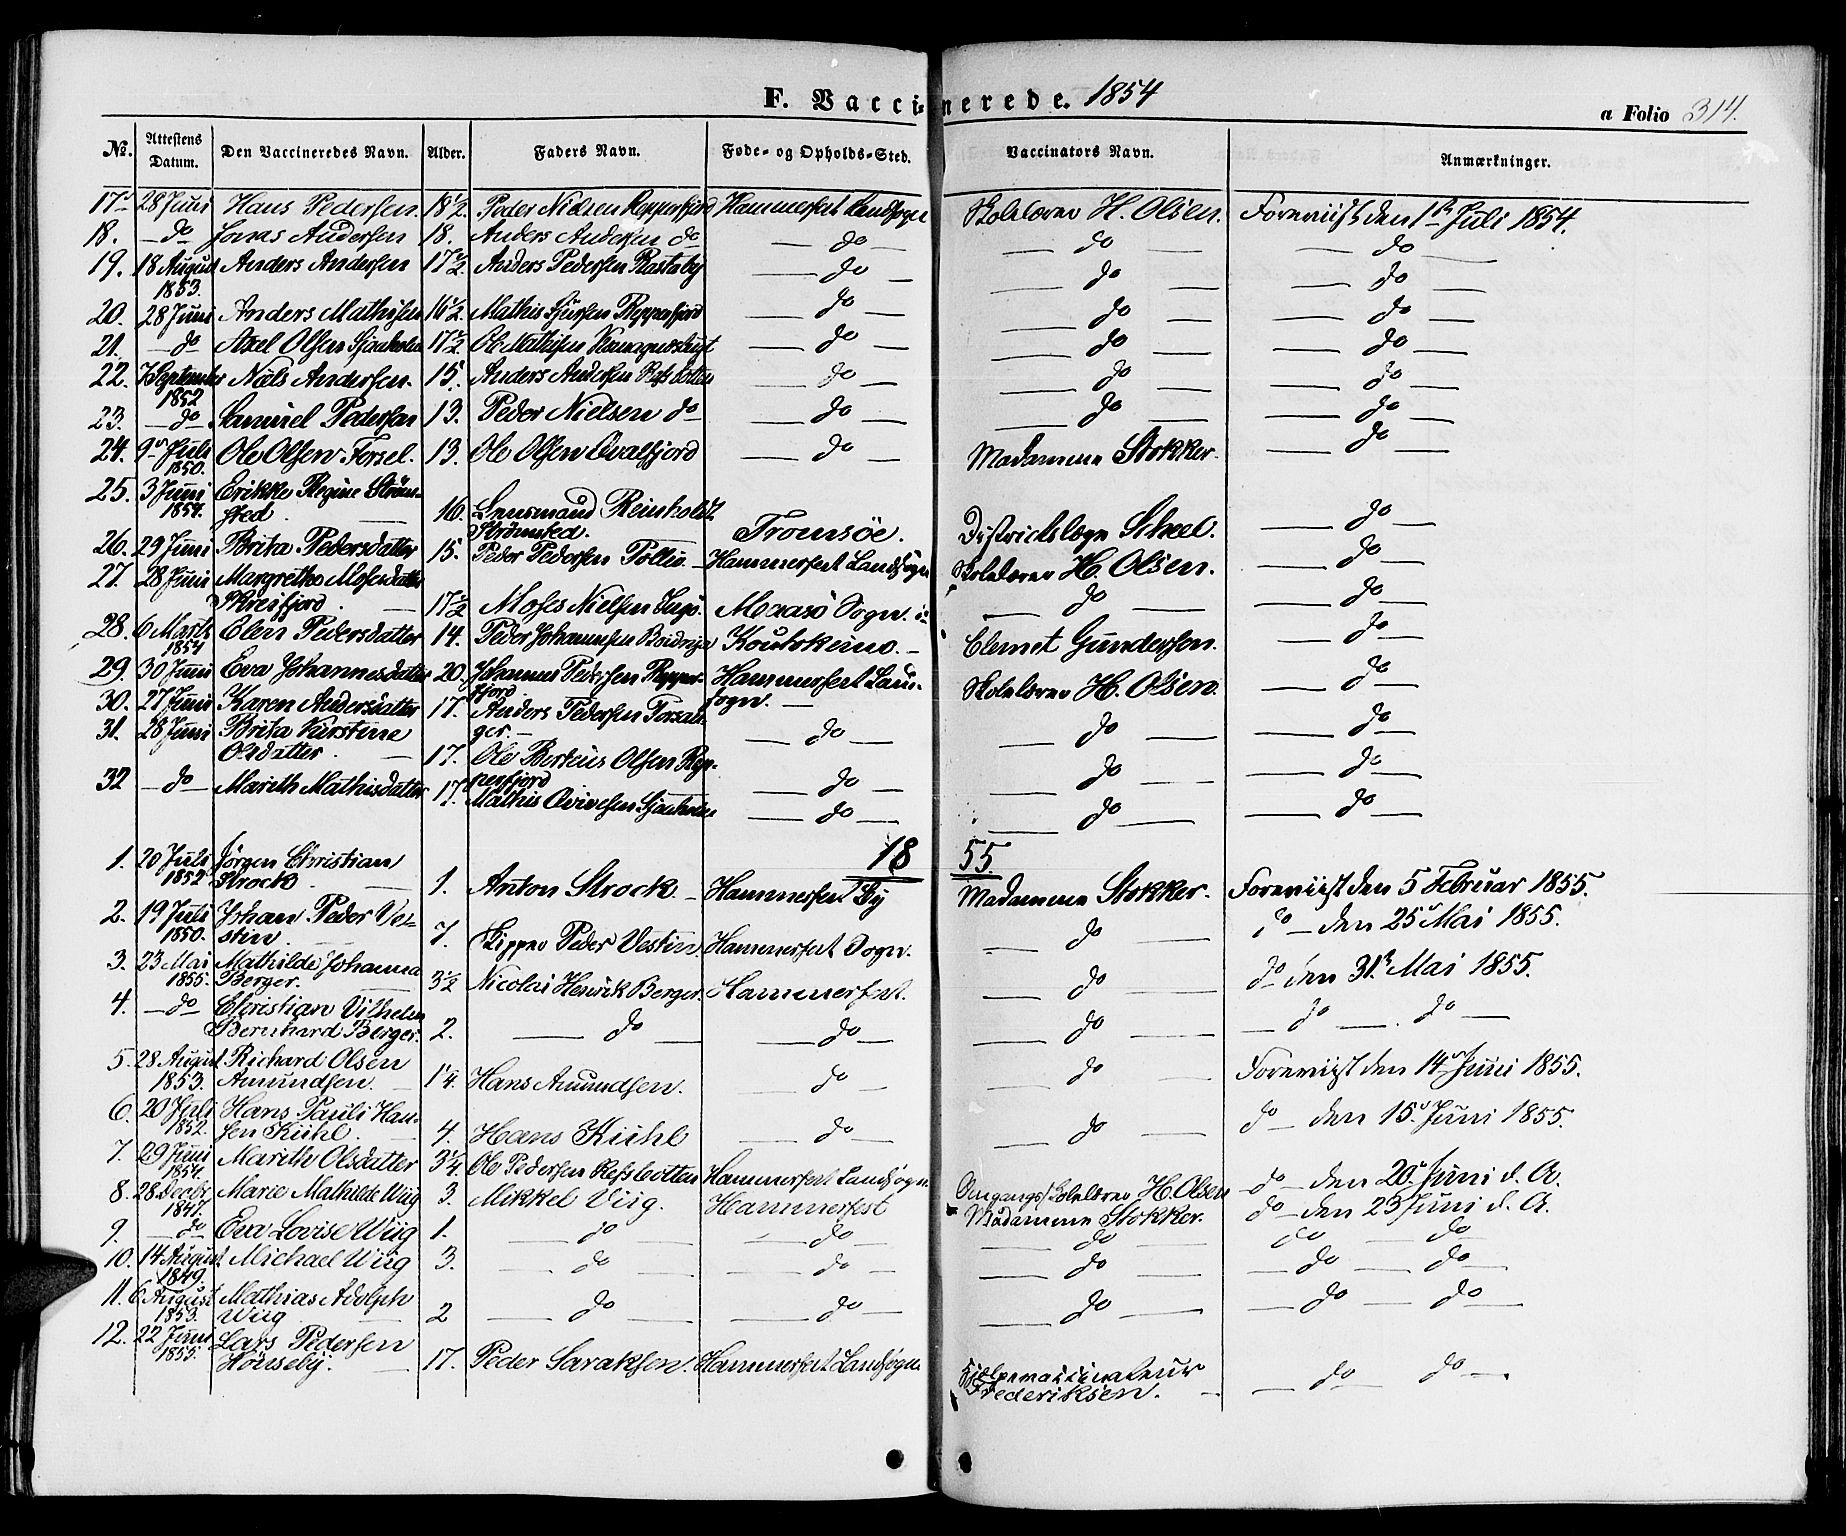 F. Vaccinerede. 1854
a Folio 314.
No. Attestens Datum. Den Vaccineredes Navn. Alder. Faders Navn. Føde- og Opholds-Sted. Vaccinators Navn. Anmærkninger.
17 28 Juni Hans Pedersen. 18½. Peder Nielsen Repperfjord Hammerfest Landsogn Skolelærer H. Olsen. Foreviist den 1ste Juli 1854.
18. — do Jonas Andersen 18. Anders Andersen do — do — — do — — do —
19. 18 August 1853. Anders Andersen 17½. Anders Pedersen Rastaby — do — — do — — do —
20. 28 Juni Anders Mathisen 16½ Mathis Repperfjord — do — — do — — do —
21. — do Axel Olsen 17½. Ole Mathisen — do — — do — — do —
22. 7 September 1852 Nils Andersen. 15. Anders Andersen Refsbotten — do — — do — — do —
23. — do — Samuel Pedersen 13. Peder Nielsen do — do — — do — — do —
24. 9 Juli 1850. Ole Olsen Forsel. 13. Ole Olsen Qvalfjord — do — Madamme Stokker. — do —
25. 3 Juni 1854. Erikke Regine Strömsted. 16. Lensmand Reinholdt Strömsted. Tromsöe. Districtslæge Scheel. — do —
26. 29 Juni Brita Pedersdatter 15. Peder Pedersen Pollen — Hammerfest Landsogn Skolelærer H. Olsen. — do —
27. 28 Juni Margrethe Mosesdatter 17½ Moses Nielsen Maasö Sogn. — do — — do —
28. 6 Marts 1854 Elen Pedersdatter 14. Peder Johannesen Koutokeino. — Clemet Gundersen. — do —
29. 30 Juni Eva Johannesdatter 20. Johannes Pedersen Repperfjord Hammerfest Landsogn. — Skolelærer H. Olsen. — do —
30. 27 Juni Karen Andersdatter 17. Anders Pedersen Porsanger. — — do — — do — — do —
31. 28 Juni Brita Kirstine Olsdatter 17. Ole Olsen Repperfjord — do — — do — — do —
32 — do — Marith Mathisdatter 17. Mathis — do — — do — — do —
1855.
1. 20 Juli 1852 Jörgen Christian Strock. 1. Anton Strock. — Hammerfest By Madamme Stokker. Foreviist den 5 Februar 1855.
2. 19 Juli 1850. Johan Peder Vestin. 7. Skipper Peder Vestin. Hammerfest Sogn. — do — do — den 25 Mai 1855.
3. 23 Mai 1855. Mathilde Johanna Berger. 3½ Nicolai Henrik Berger. Hammerfest. — do — do den 31te Mai 1855.
4. — do Christian Vilhelm Bernhard Berger. 2. — do — — do — — do — — do — do —
5. 28 August 1853. Richard Olsen Amundsen. 1¼. Hans Amundsen. — do — — do — Foreviist den 14 Juni 1855.
6. 20 Juli 1852. Hans Pauli Hansen Kühl. 4. Hans Kühl — do — — do — do — den 15. Juni 1855.
7. 29 Juni 1854. Marith Olsdatter 3¼. Ole Pedersen Refsbotten Hammerfest Landsogn. Omgangsskolelærer H. Olsen do — den 20 Juni d. A.
8. 28 Decbr 1847. Marie Mathilde Wiig 3. Mikkel Viig. Hammerfest Madamme Stokker. do — den 23 Juni d. A.
9. — do Eva Lovise Wiig 1. — do — — do — — do — do — do
10. 14 August 1849. Michael Wiig 3. — do — — do — — do — — do — do —
11. 6 August 1853. Mathias Adolph Wiig 2 — do — — do — — do — — do — do —
12. 22 Juni 1855. Lars Pedersen Hönseby. 17. Peder Saraksen. Hammerfest Landsogn Hjelpevaccinateur Frederiksen. — do — do —